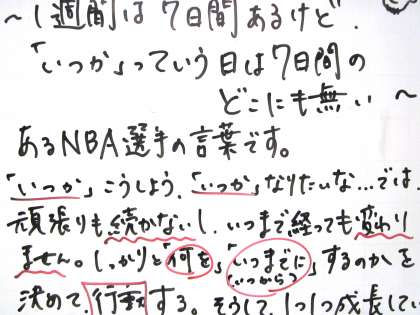 ～1週間は7日間あるけど.
「いつか」っていう日は7日間の
どこにも無い～
あるNBA選手の言葉です。
「いつか」こうしよう、「いつか」なりたいな…では
頑張りも続かないし、いつまで経っても変わり
ません。しっかりと「何を」「いつまでに
いつから?」するのかを
決めて、行動する。そうして、1つ1つ成長してい